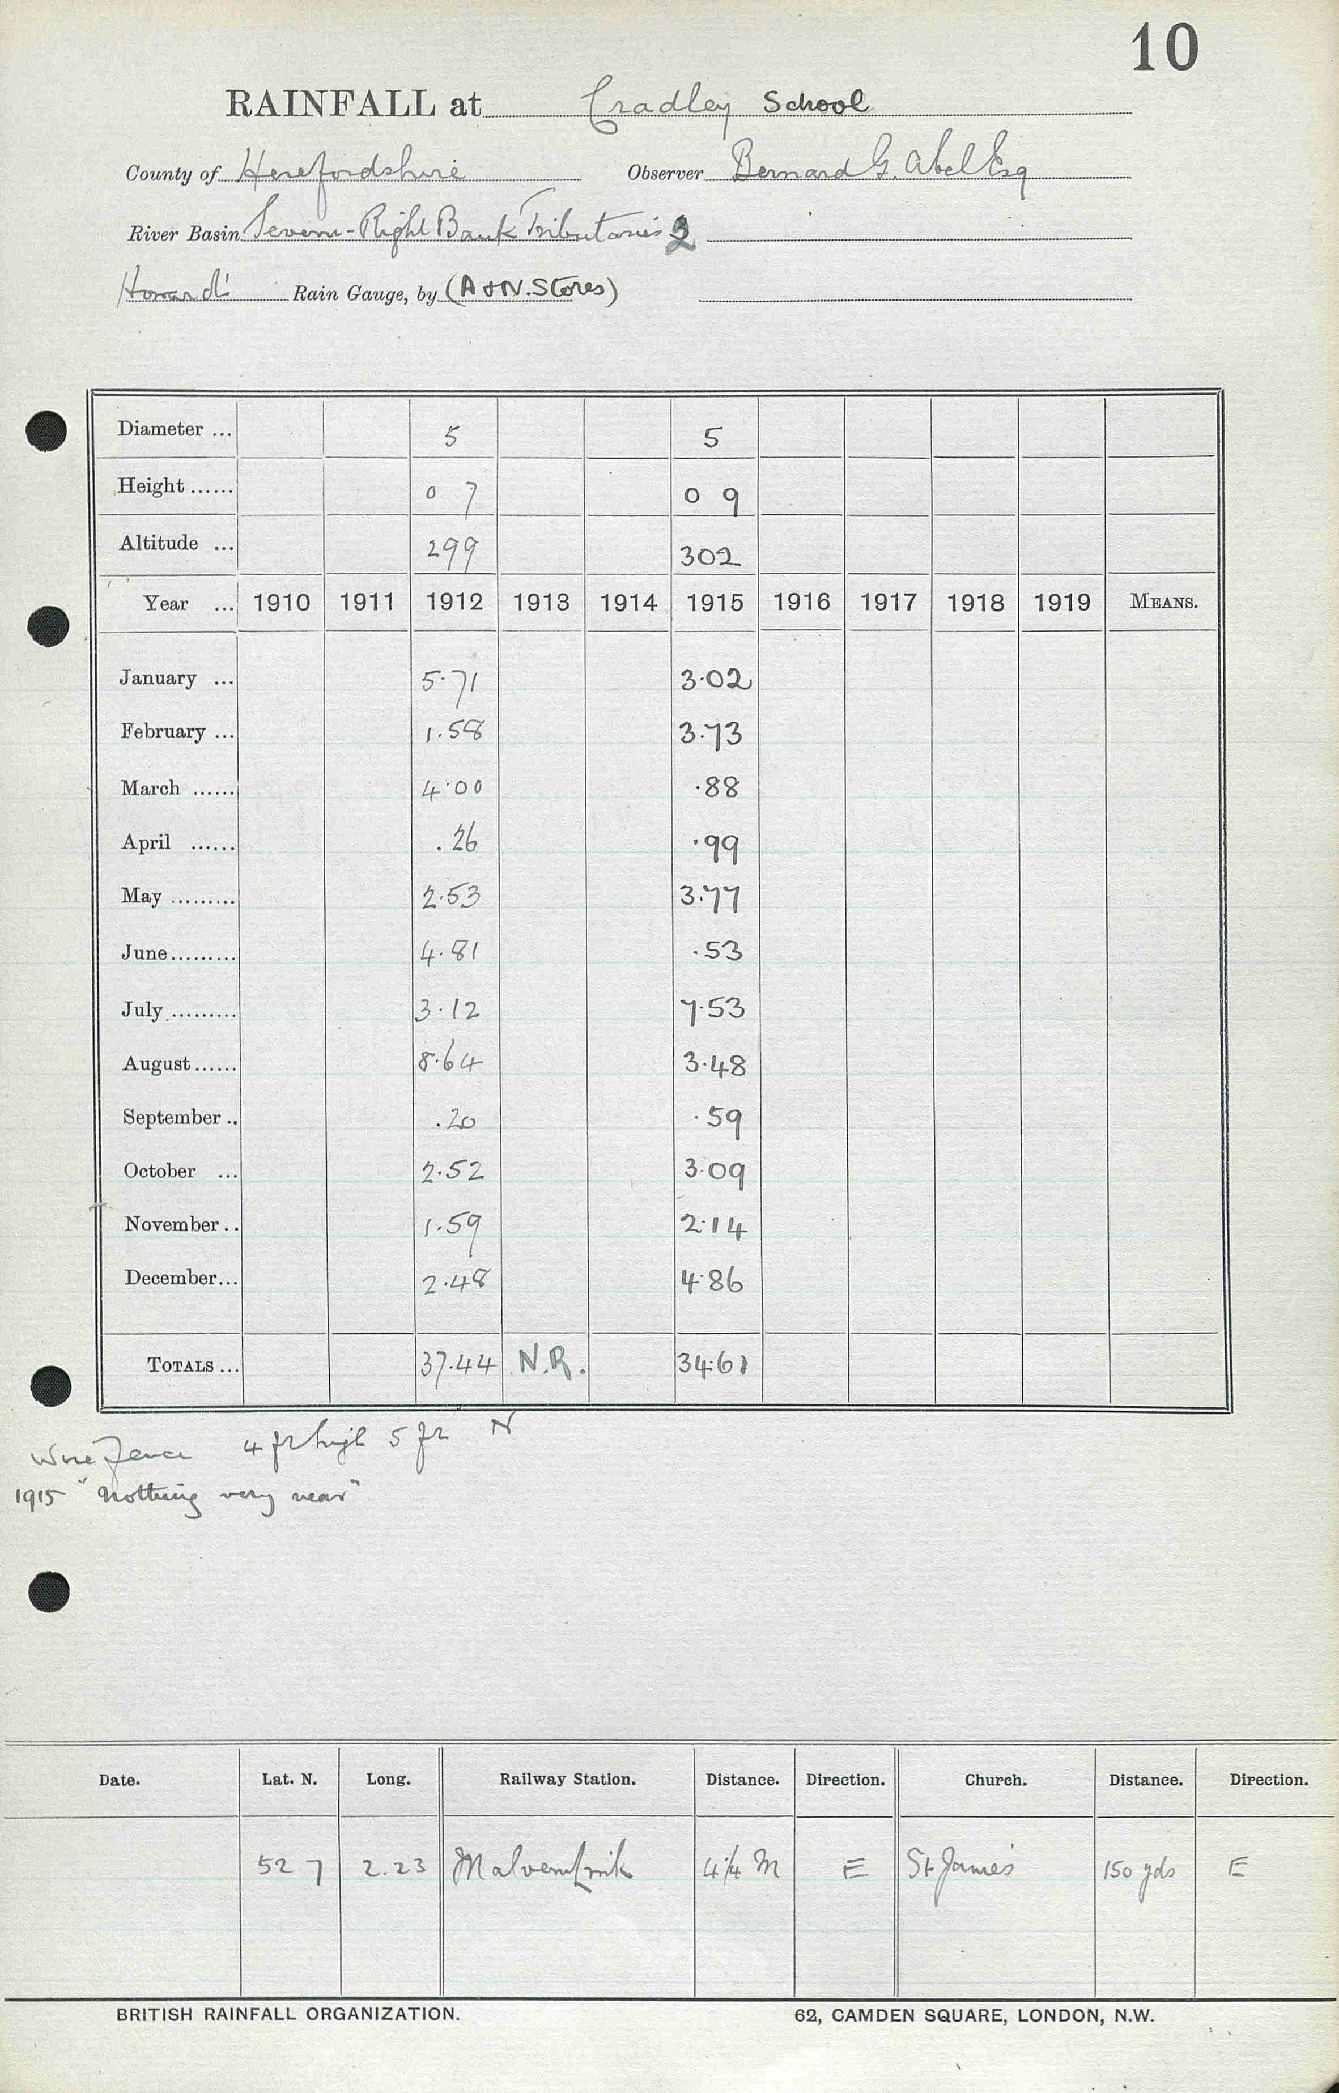 10
RAINFALL at Cradley School
County of Herefordshire Observer Bernard G. Abel Esq
River Basin Severn-Right Bank Tributaries 2
Howard's Rain Gauge, by (A & N. Stores)
Diameter ... 5 5
Height ...... 0 7 0 9
Altitude ... 299 302
Year ... 1910 1911 1912 1913 1914 1915 1916 1917 1918 1919 MEANS.
January ... 5.71 3.02
February ... 1.58 3.73
March ...... 4.00 .88
April ...... .26 .99
May ......... 2.53 3.77
June......... 4.81 .53
July ......... 3.12 7.53
August...... 8.64 3.48
September .. .20 .59
October ... 2.52 3.09
November .. 1.59 2.14
December... 2.48 4.86
TOTALS ... 37.44 N.R. 34.61
Wire Fence 4 ft high 5 ft N
1915 "Nothing very near"
Date. Lat. N. Long. Railway Station. Distance. Direction. Church. Distance. Direction.
52 7 2.23 Malvern Link 4¼ M E St James 150 yds E
BRITISH RAINFALL ORGANIZATION. 62, CAMDEN SQUARE, LONDON, N.W.